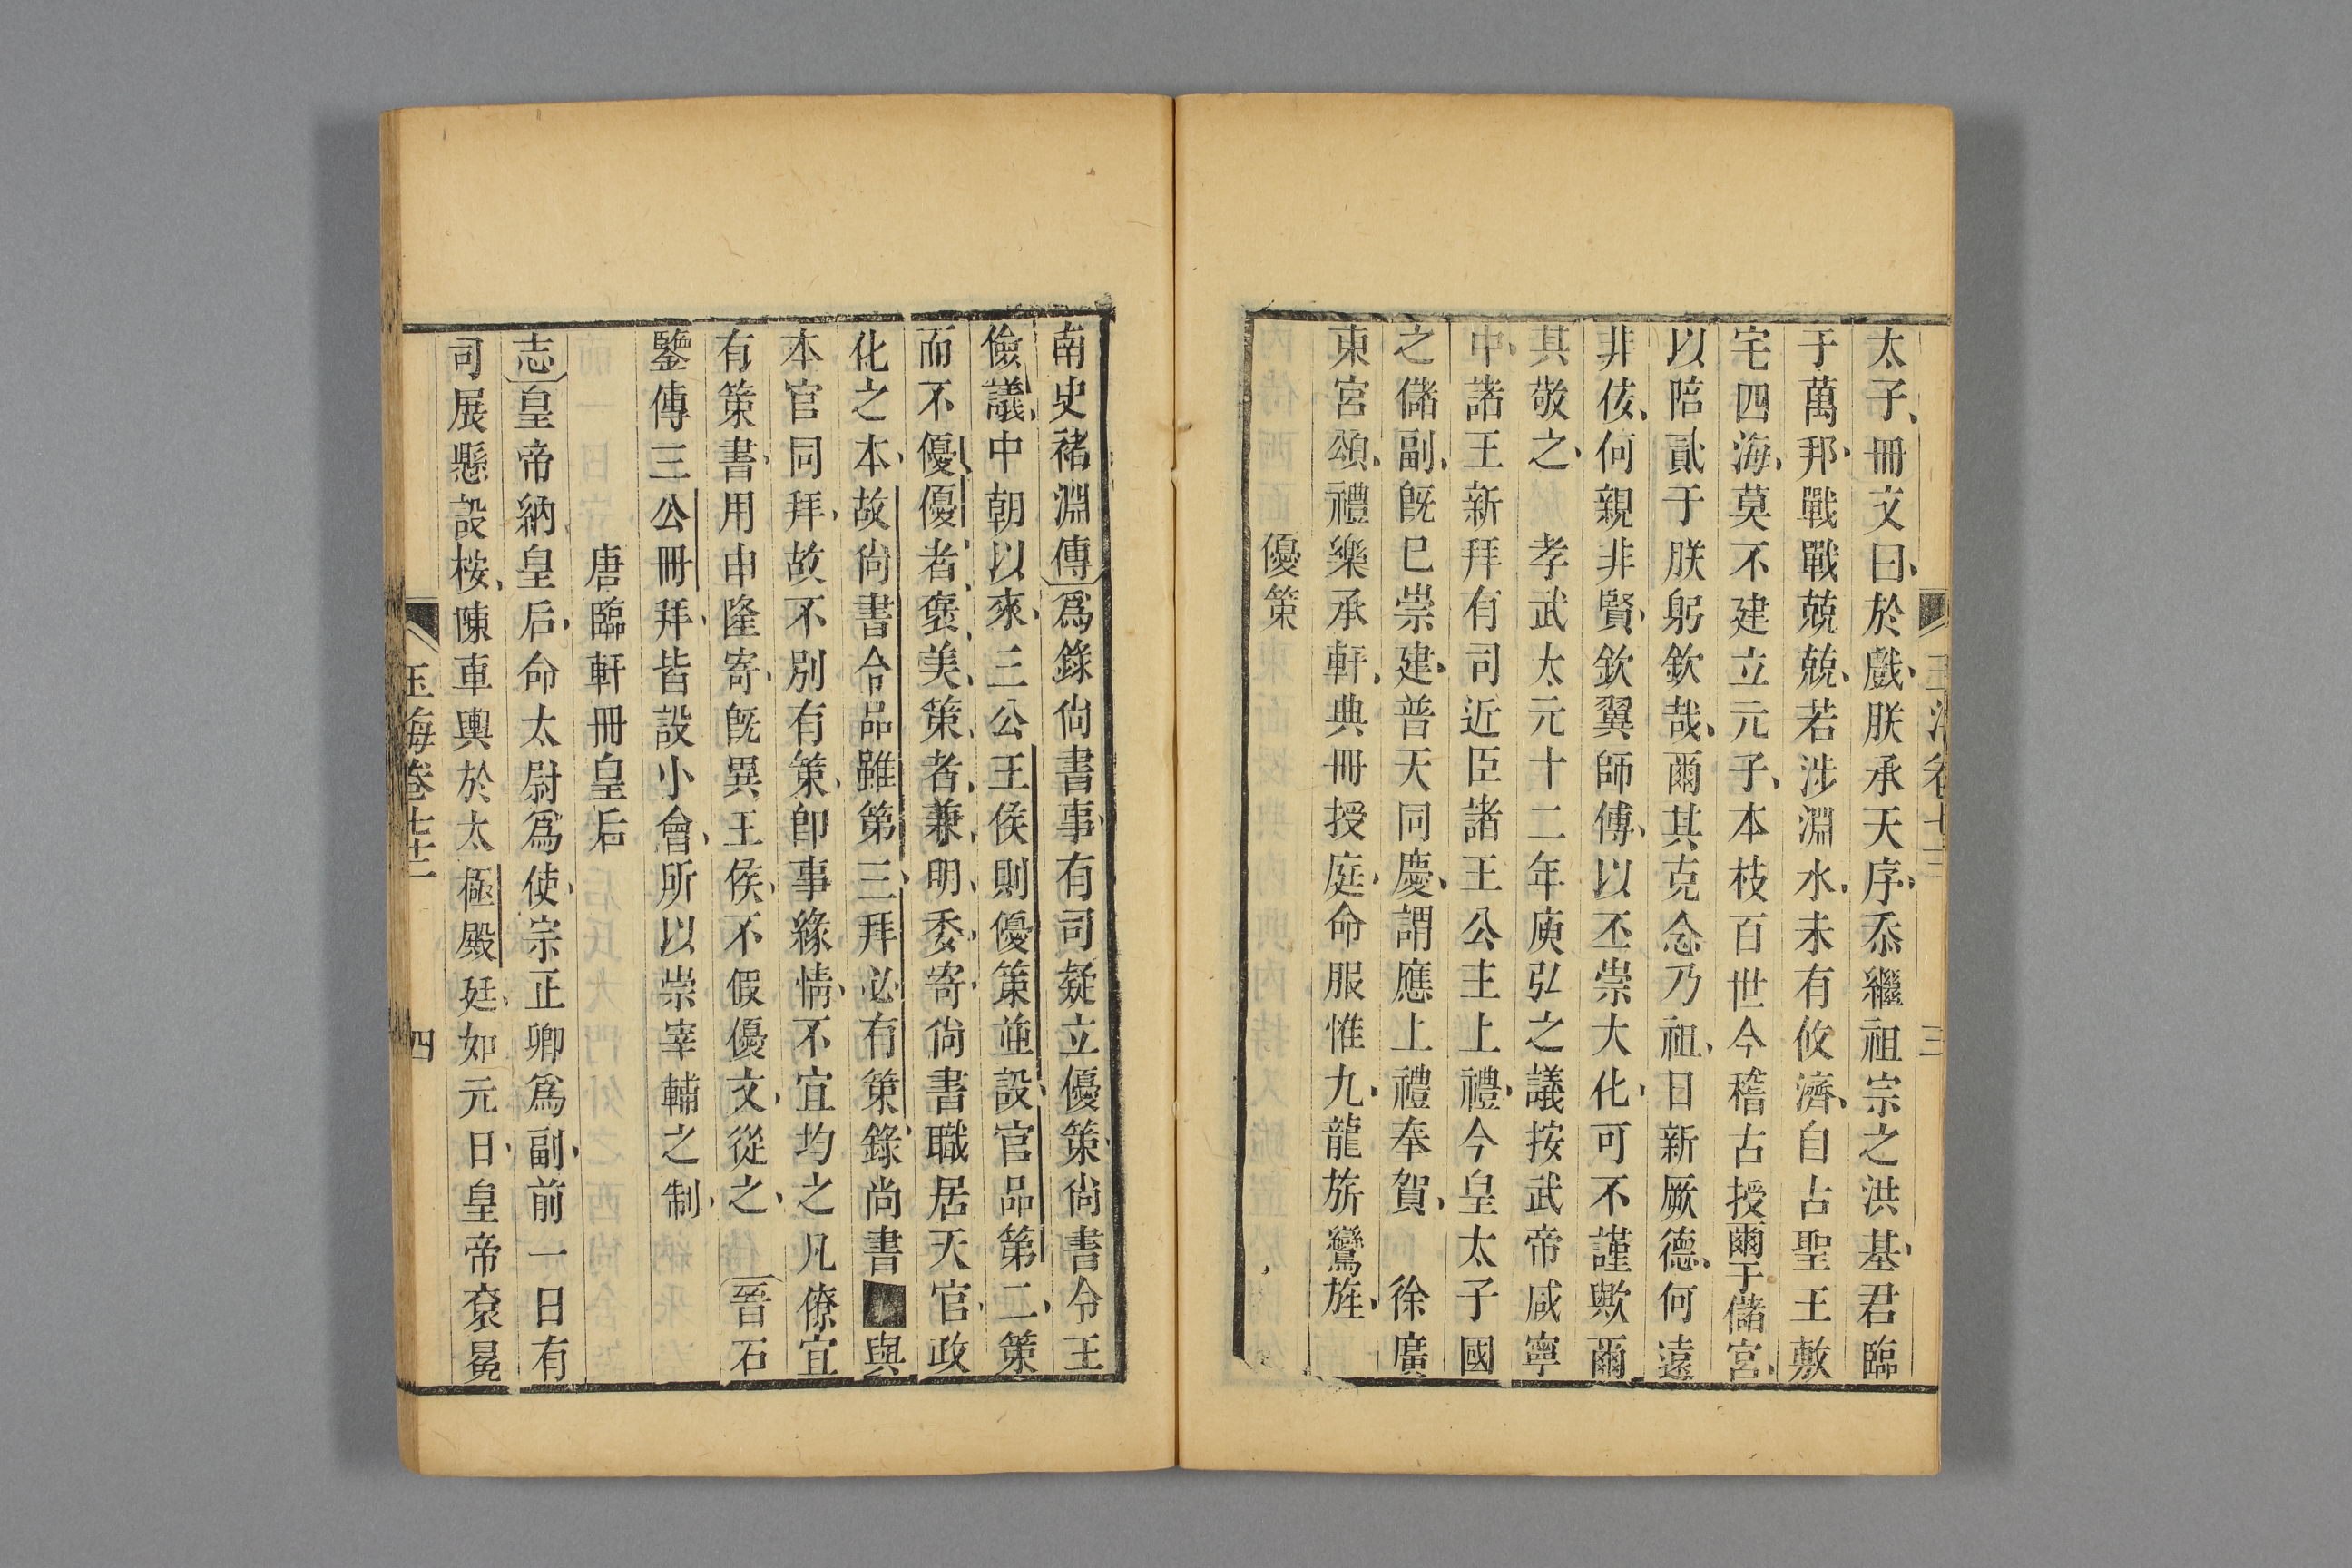 太子冊文曰於戲朕承天序忝繼祖宗之洪基君臨
于萬邦戰戰兢兢若涉淵水未有攸濟自古聖王敷
宅四海莫不建立元子本枝百世今稽古授爾于儲宮
以陪貳于朕躬欽哉爾其克念乃祖日新厥德何遠
非佞何親非賢欽翼師傅以丕崇大化可不謹歟爾
其敬之 孝武太元十二年庾弘之議按武帝咸寧
中諸王新拜有司近臣諸王公主上禮今皇太子國
之儲副旣已崇建普天同慶謂應上禮奉賀 徐廣
東宮頌禮樂承軒典冊授庭命服惟九龍旂鸞旌
優策
南史褚淵傳爲錄尙書事有司疑立優策尙書令王
儉議中朝以來三公王侯則優策並設官品第二策
而不優優者褒美策者兼明委寄尙書職居天官政
化之本故尙書令品雖第三拜必有策錄尙書與
本官同拜故不別有策卽事緣情不宜均之凡僚宜
有策書用申隆寄旣異王侯不假優文從之 晉石
鑒傳三公冊拜皆設小會所以崇宰輔之制
唐臨軒冊皇后
志皇帝納皇后命太尉爲使宗正卿爲副前一日有
司展懸設桉陳車輿於太極殿廷如元日皇帝袞冕
玉海卷七十三
四